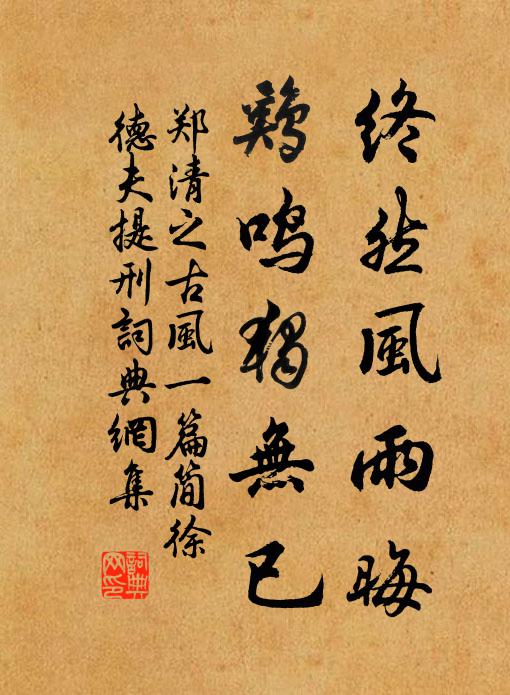 终然風雨晦
鷄鸣獨無已
郑清之古風一篇简徐
德夫提刑詞典網集
詞典
网印